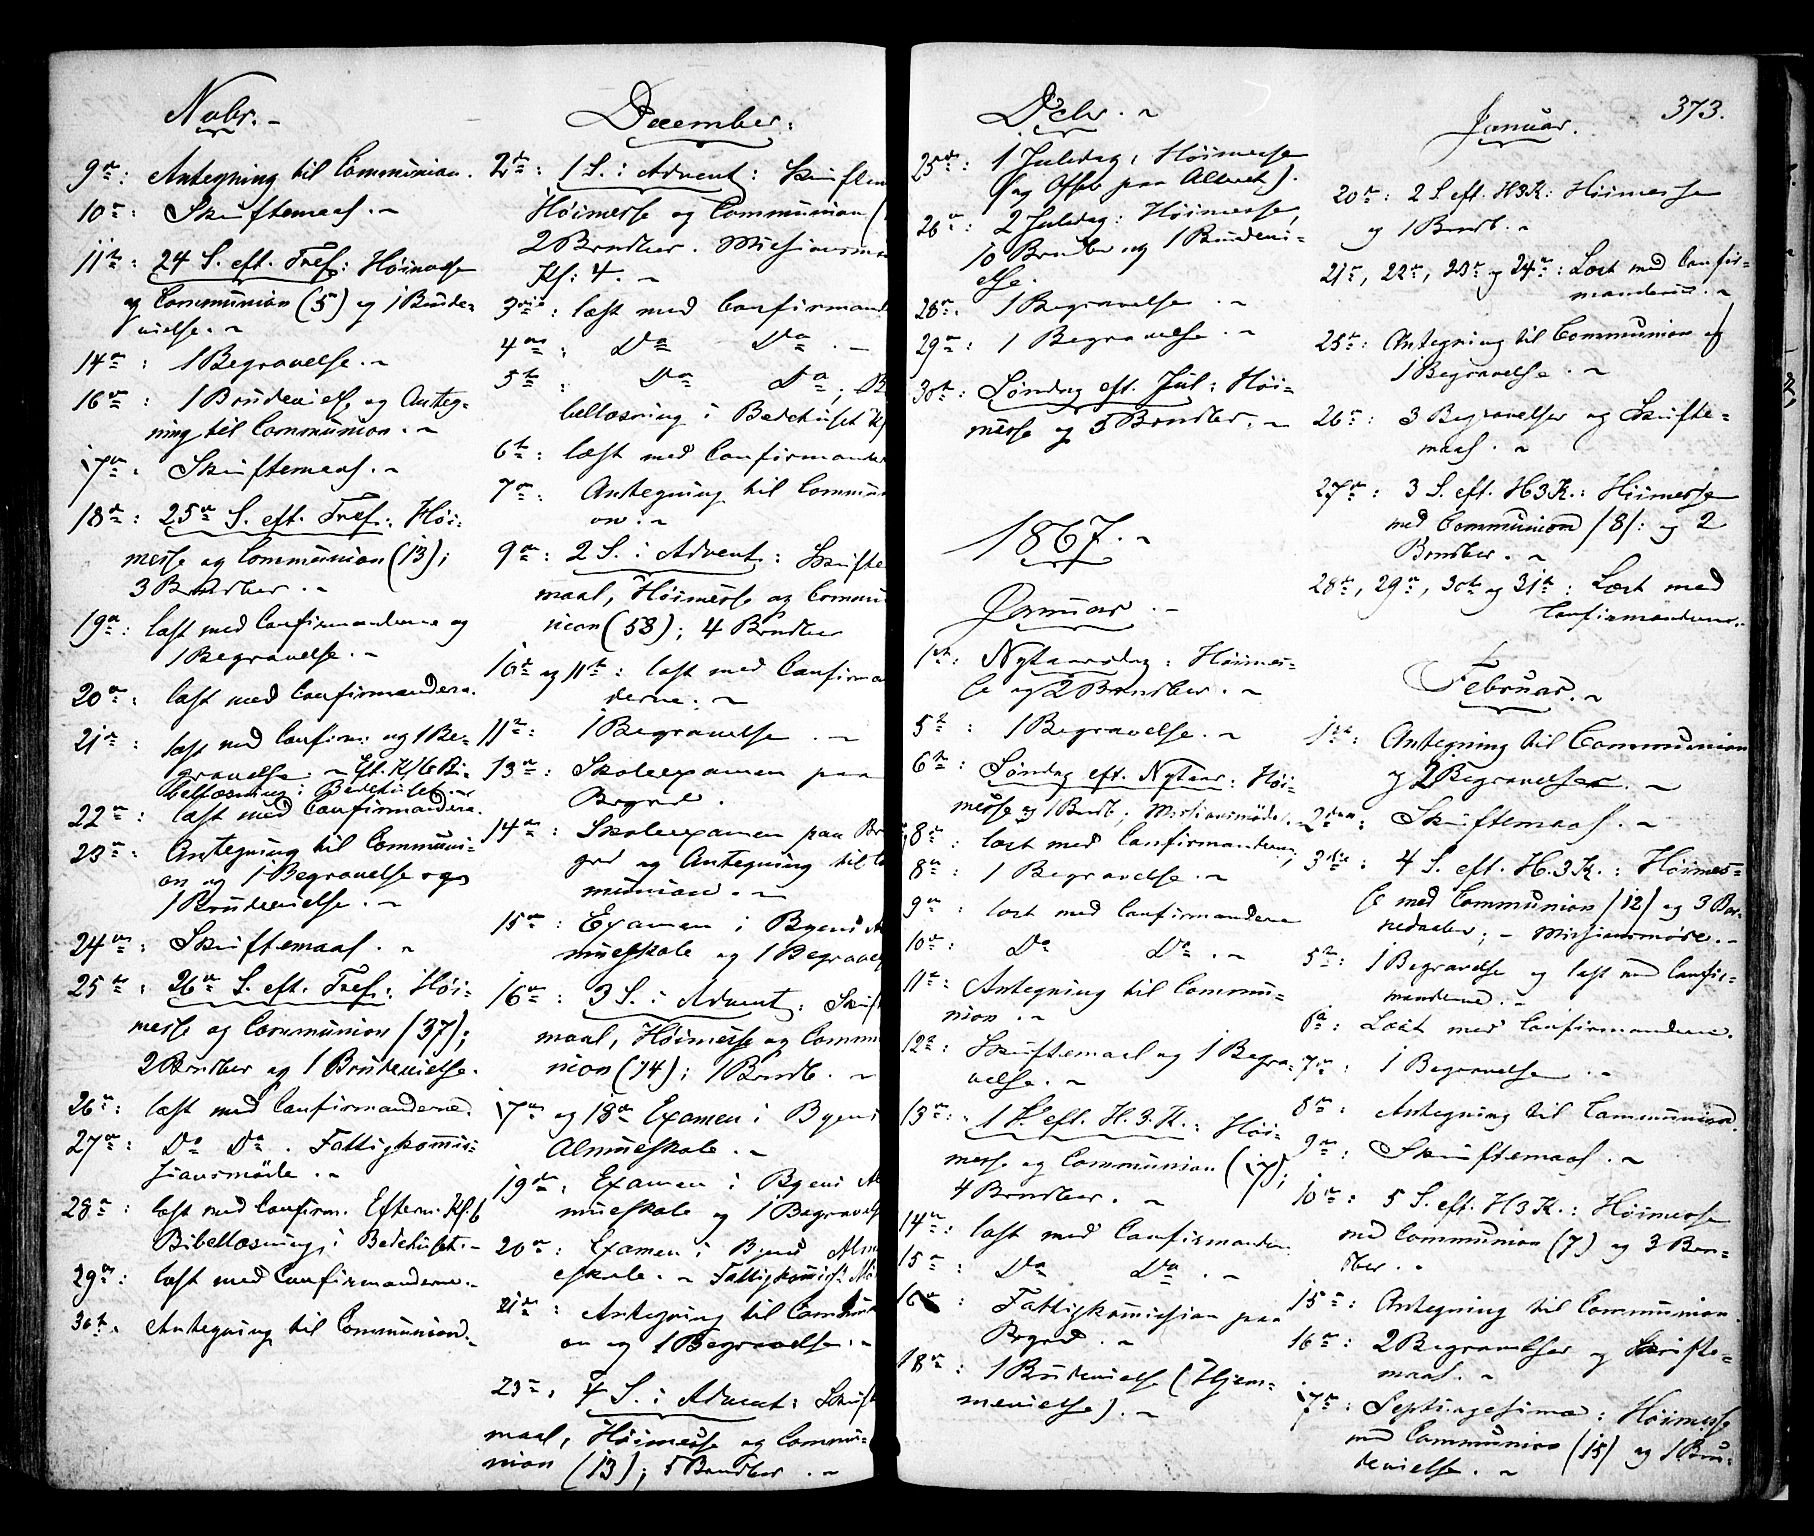 Novbr. -
9de: Antegning til Communion.
10de: Skriftemaal. -
11te: 24 S. eft. Tref: Høimesse
og Communion (5) og 1 Brude-
vielse. -
14de: 1 Begravelse. -
16de: 1 Brudevielse og Anteg-
ning til Communion. -
17de: Skriftemaal. -
18de: 25de S. eft. Tref.: Høi-
messe og Communion (13);
3 Barnedaaber. -
19de: læst med Confirmanderne og
1 Begravelse. -
20de: læst med Confirmanderne.
21de: læst med Confirm: og 1 Be-
gravelse. - Eft. Kl 6 Bi-
bellæsning i Bedehuset. -
22de: læst med Confirmanderne.
23de: Antegning til Communi-
on og 1 Begravelse og
1 Brudevielse. -
24de: Skriftemaal. -
25de: 26de S. eft. Tref.: Høi-
messe og Communion (37);
2 Brndber og 1 Brudevielse.
26de: læst med Confirmanderne.
27de: Do Do. Fattigkommis-
sionsmøde. -
28de: læst med Confirm. Efterm. Kl. 6
Bibellæsning i Bedehuset. -
29de: læst med Confirmanderne. -
30te: Antegning til Communion. -
December.
2den: 1 S. i Advent: Skriftem
Høimesse og Communion (
2 Brndber. Missionsmø
Kl: 4. -
3die: læst med Confirmand
4de: Do Do. -
5te: Do Do; B
bellæsning i Bedehuset Kl
6te: læst med Confirmander
7de: Antegning til Commun
on. -
9de: 2 S. i Advent: Skrifte
maal, Høimesse og Commu
nion (58); 4 Brndber
10de og 11te: læst med Confirma
derne. -
11te: 1 Begravelse. -
13de: Skoleexamen paa
Bogerud.
14de: Skoleexamen paa Bo
grd og Antegning til Co
munion. -
15de: Examen i Byens Al
mueskole og 1 Begravels
16de: 3 S. i Advent: Skrift
maal, Høimesse og Commu
nion (74); 1 Brndb. -
17de og 18de Examen i Byens
Almueskole. -
19de: Examen i Byens Al
mueskole og 1 Begravels
20de: Examen i Byens Almu
eskole. - Fattigkommiss. Mø
21de: Antegning til Commun
on og 1 Begravelse. -
23de: 4 S. i Advent: Skrift
maal, Høimesse og Commu-
nion (13); 5 Brndber. -
Decbr. -
25de: 1 Juledag: Høimesse
(og Offer paa Alteret).
26de: 2 Juledag: Høimesse,
10 Brndbr og 1 Brudevi-
else.
28de. 1 Begravelse. -
29de: 1 Begravelse. -
30te: Søndag eft. Jul: Høi-
messe og 5 Brndber. -
1867. -
Januar. -
1ste: Nytaarsdag: Høimes-
se og 2 Brndber. -
5te: 1 Begravelse. -
6te: Søndag eft. Nytaar: Høi-
messe og 1 Brndb; Missionsmøde. -
8de: læst med Confirmanderne,
8de: 1 Begravelse. -
9de: læst med Confirmanderne
10de: Do Do. -
11te: Antegning til Commu-
nion. -
12te: Skriftemaal og 1 Begra-
velse. -
13de: 1 S. eft. H. 3. K.: Høi-
messe og Communion (17);
4 Brndber. -
14de: læst med Confirmander.
15de: Do. Do. -
16de: Fattigkommission paa
Bogrd. -
18de: 1 Brudevielse (Hjem-
mevielse). -
373.
Januar.
20de: 2 S. eft. H3K: Høimesse
og 1 Brndb. -
21de, 22de, 23de og 24de: Læst med Confir-
manderne. -
25de: Antegning til Communion og
1 Begravelse. -
26de: 3 Begravelser og Skrifte-
maal. -
27de: 3 S. eft. H3K.: Høimesse
med Communion /8/: og 2
Brndber. -
28de, 29de, 30te og 31te: Læst med
Confirmanderne. -
Februar. -
1ste: Antegning til Communion
og 2 Begravelser. -
2den: Skriftemaal. -
3die: 4 S. eft. H.3K.: Høimes-
se med Communion /12/ og 3 Bar-
nedaaber; - Missionsmøde. -
5te: 1 Begravelse og læst med Confir-
manderne. -
6te: Læst med Confirmanderne.
7de: 1 Begravelse. -
8de: Antegning til Communion.
9de: Skriftemaal. -
10de: 5 S. eft. H3K.: Høimesse
med Communion (7) og 3 Brn-
dber. -
15de: Antegning til Communion.
16de: 2 Begravelser og Skrifte-
maal. -
17de: Septuagesima: Høimesse
med Communion (15) og 1 Bru-
devielse. -